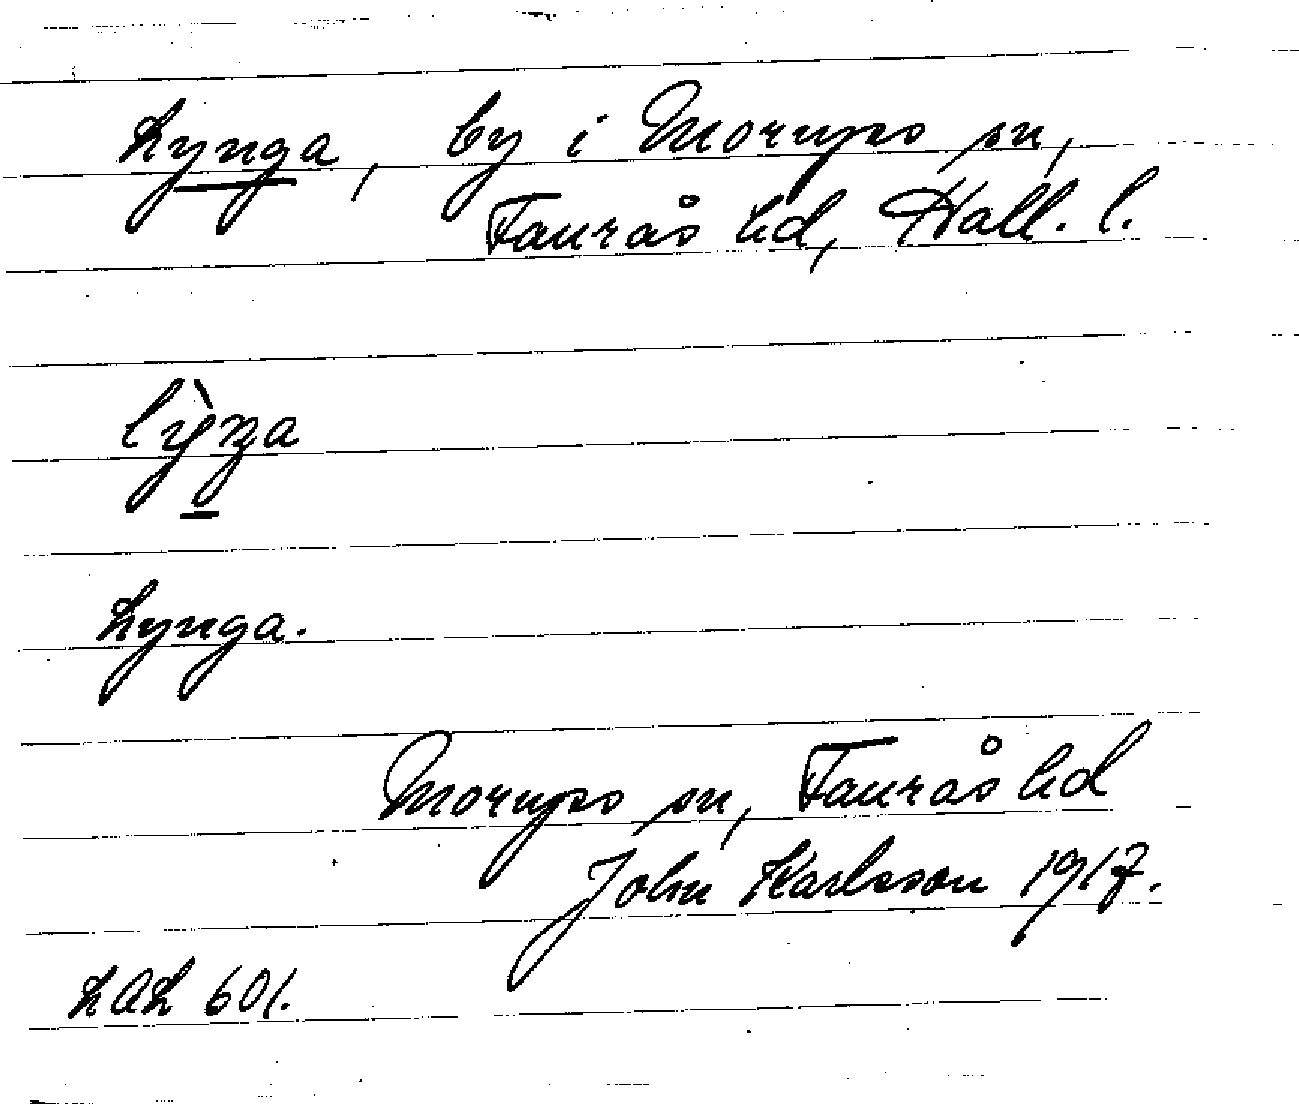 Lynga, by i Morups sn,
Faurås hd, Hall. l.
lỳŋa
Lynga.
Morups sn, Faurås hd
John Karlsson 1917.
LAL 601.